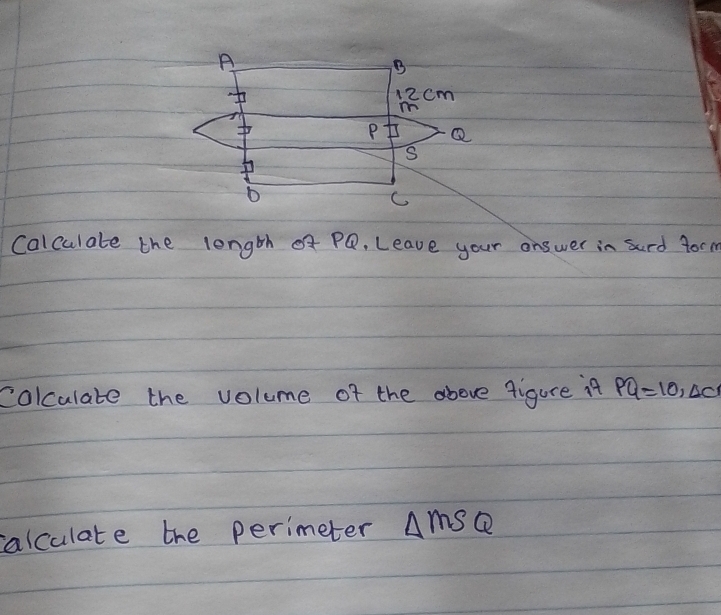 A B
12cm
m
P Q
S
D C
Calculate the length of PQ. Leave your answer in surd form
Calculate the volume of the above figure if PQ=10,
alculate the perimeter ΔMSQ